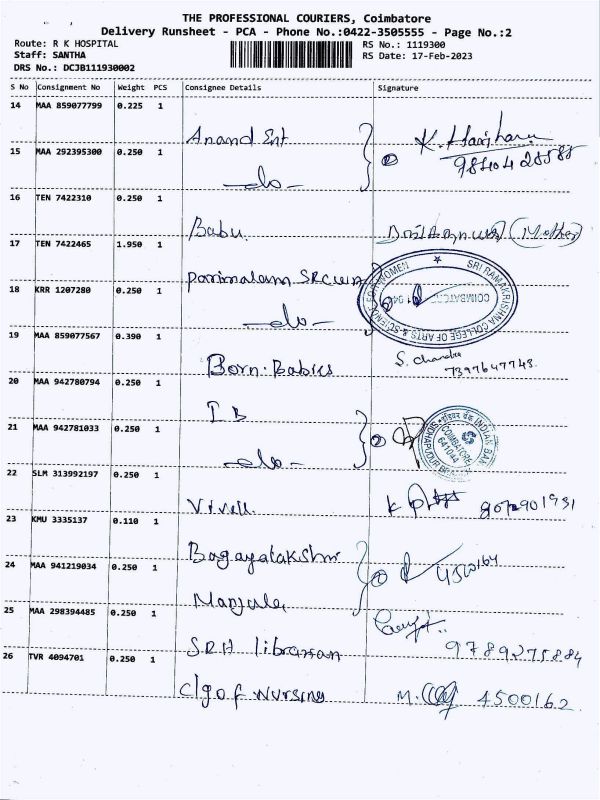 THE PROFESSIONAL COURIERS, Coimbatore
Delivery Runsheet - PCA - Phone No.:0422-3505555 - Page No.:2
Route: R K HOSPITAL
Staff: SANTHA
DRS No.: DCJB111930002
RS No.: 1119300
RS Date: 17-Feb-2023
S No Consignment No Weight PCS Consignee Details Signature
14 MAA 859077799 0.225 1 Anand Ent K. Hariharan
15 MAA 292395300 0.250 1 -do- 2
16 TEN 7422310 0.250 1 Babu (Mother)
17 TEN 7422465 1.950 1 Parimalam SRCW
18 KRR 1207280 0.250 1 -do-
SRI RAMAKRISHNA COLLEGE OF ARTS & SCIENCE FOR WOMEN
COIMBATORE
19 MAA 859077567 0.390 1 Born Babies S. Chandra
7397647748
20 MAA 942780794 0.250 1 IB
21 MAA 942781033 0.250 1 -do- 2
INDIAN BANK
COIMBATORE
641044
22 SLM 313992197 0.250 1 Vivek K
23 KMU 3335137 0.110 1 Bagayalakshmi
24 MAA 941219034 0.250 1 Manjula 2 4500164
25 MAA 298394485 0.250 1 SRH librarian 9789275884
26 TVR 4094701 0.250 1 Clg of Nursing M. 4500162